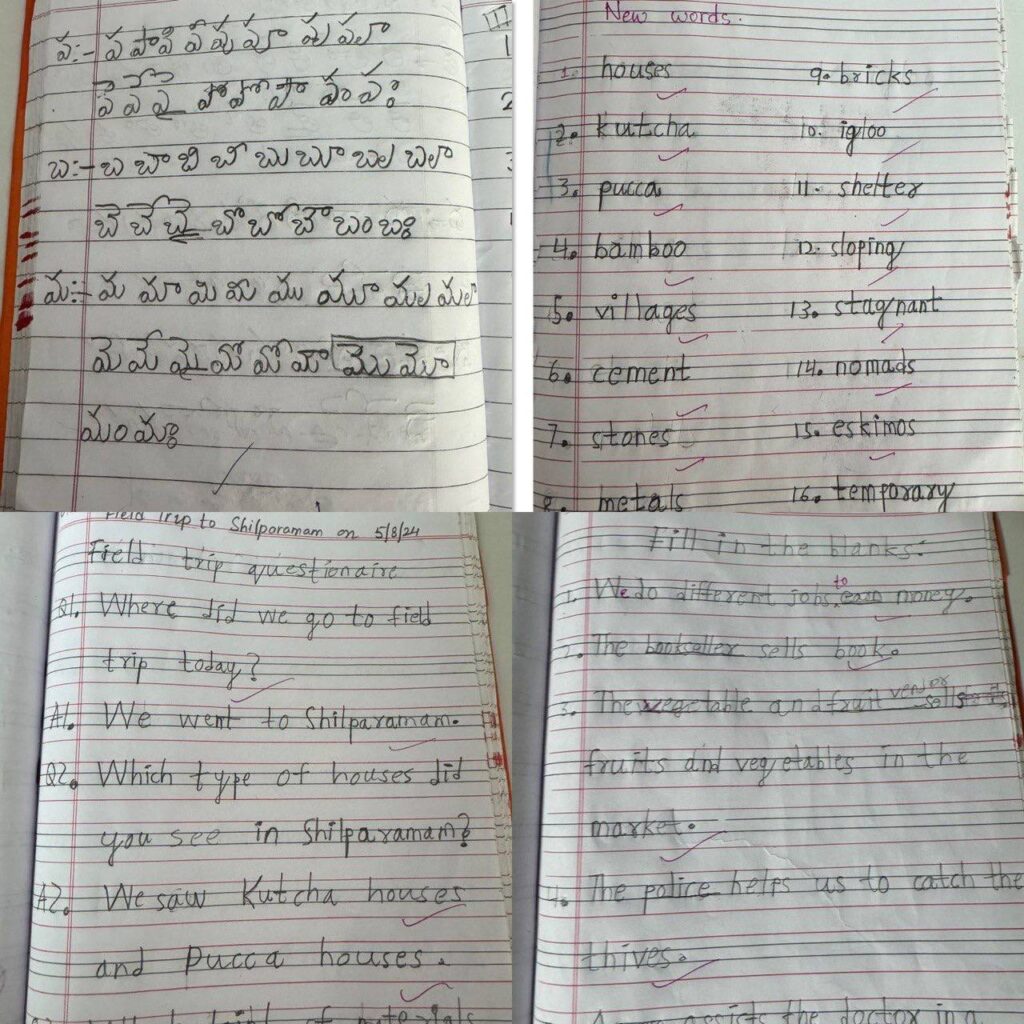 ప:- ప పా పి పీ పు పూ పృ పౄ
పె పే పై పొ పో పౌ పం పః
బ:- బ బా బి బీ బు బూ బృ బౄ
బె బే బై బొ బో బౌ బం బః
మ:- మ మా మి మీ ము మూ మృ మౄ
మె మే మై మొ మో మౌ మొ మో
మం మః
New words.
1. houses
2. Kutcha
3. pucca
4. bamboo
5. villages
6. cement
7. stones
8. metals
9. bricks
10. igloo
11. shelter
12. sloping
13. stagnant
14. nomads
15. eskimos
16. temporary
Field Trip to Shilparamam on 5/8/24
Field trip questionaire
Q1. Where did we go to field
trip today?
A1. We went to Shilparamam.
Q2. Which type of houses did
you see in Shilparamam?
A2. We saw Kutcha houses
and Pucca houses.
of materials
Fill in the blanks:
1. We do different jobs to earn money.
2. The bookseller sells book.
3. The vegetable and fruit vendor sells
fruits and vegetables in the
market.
4. The police helps us to catch the
thives.
assists the doctor in a